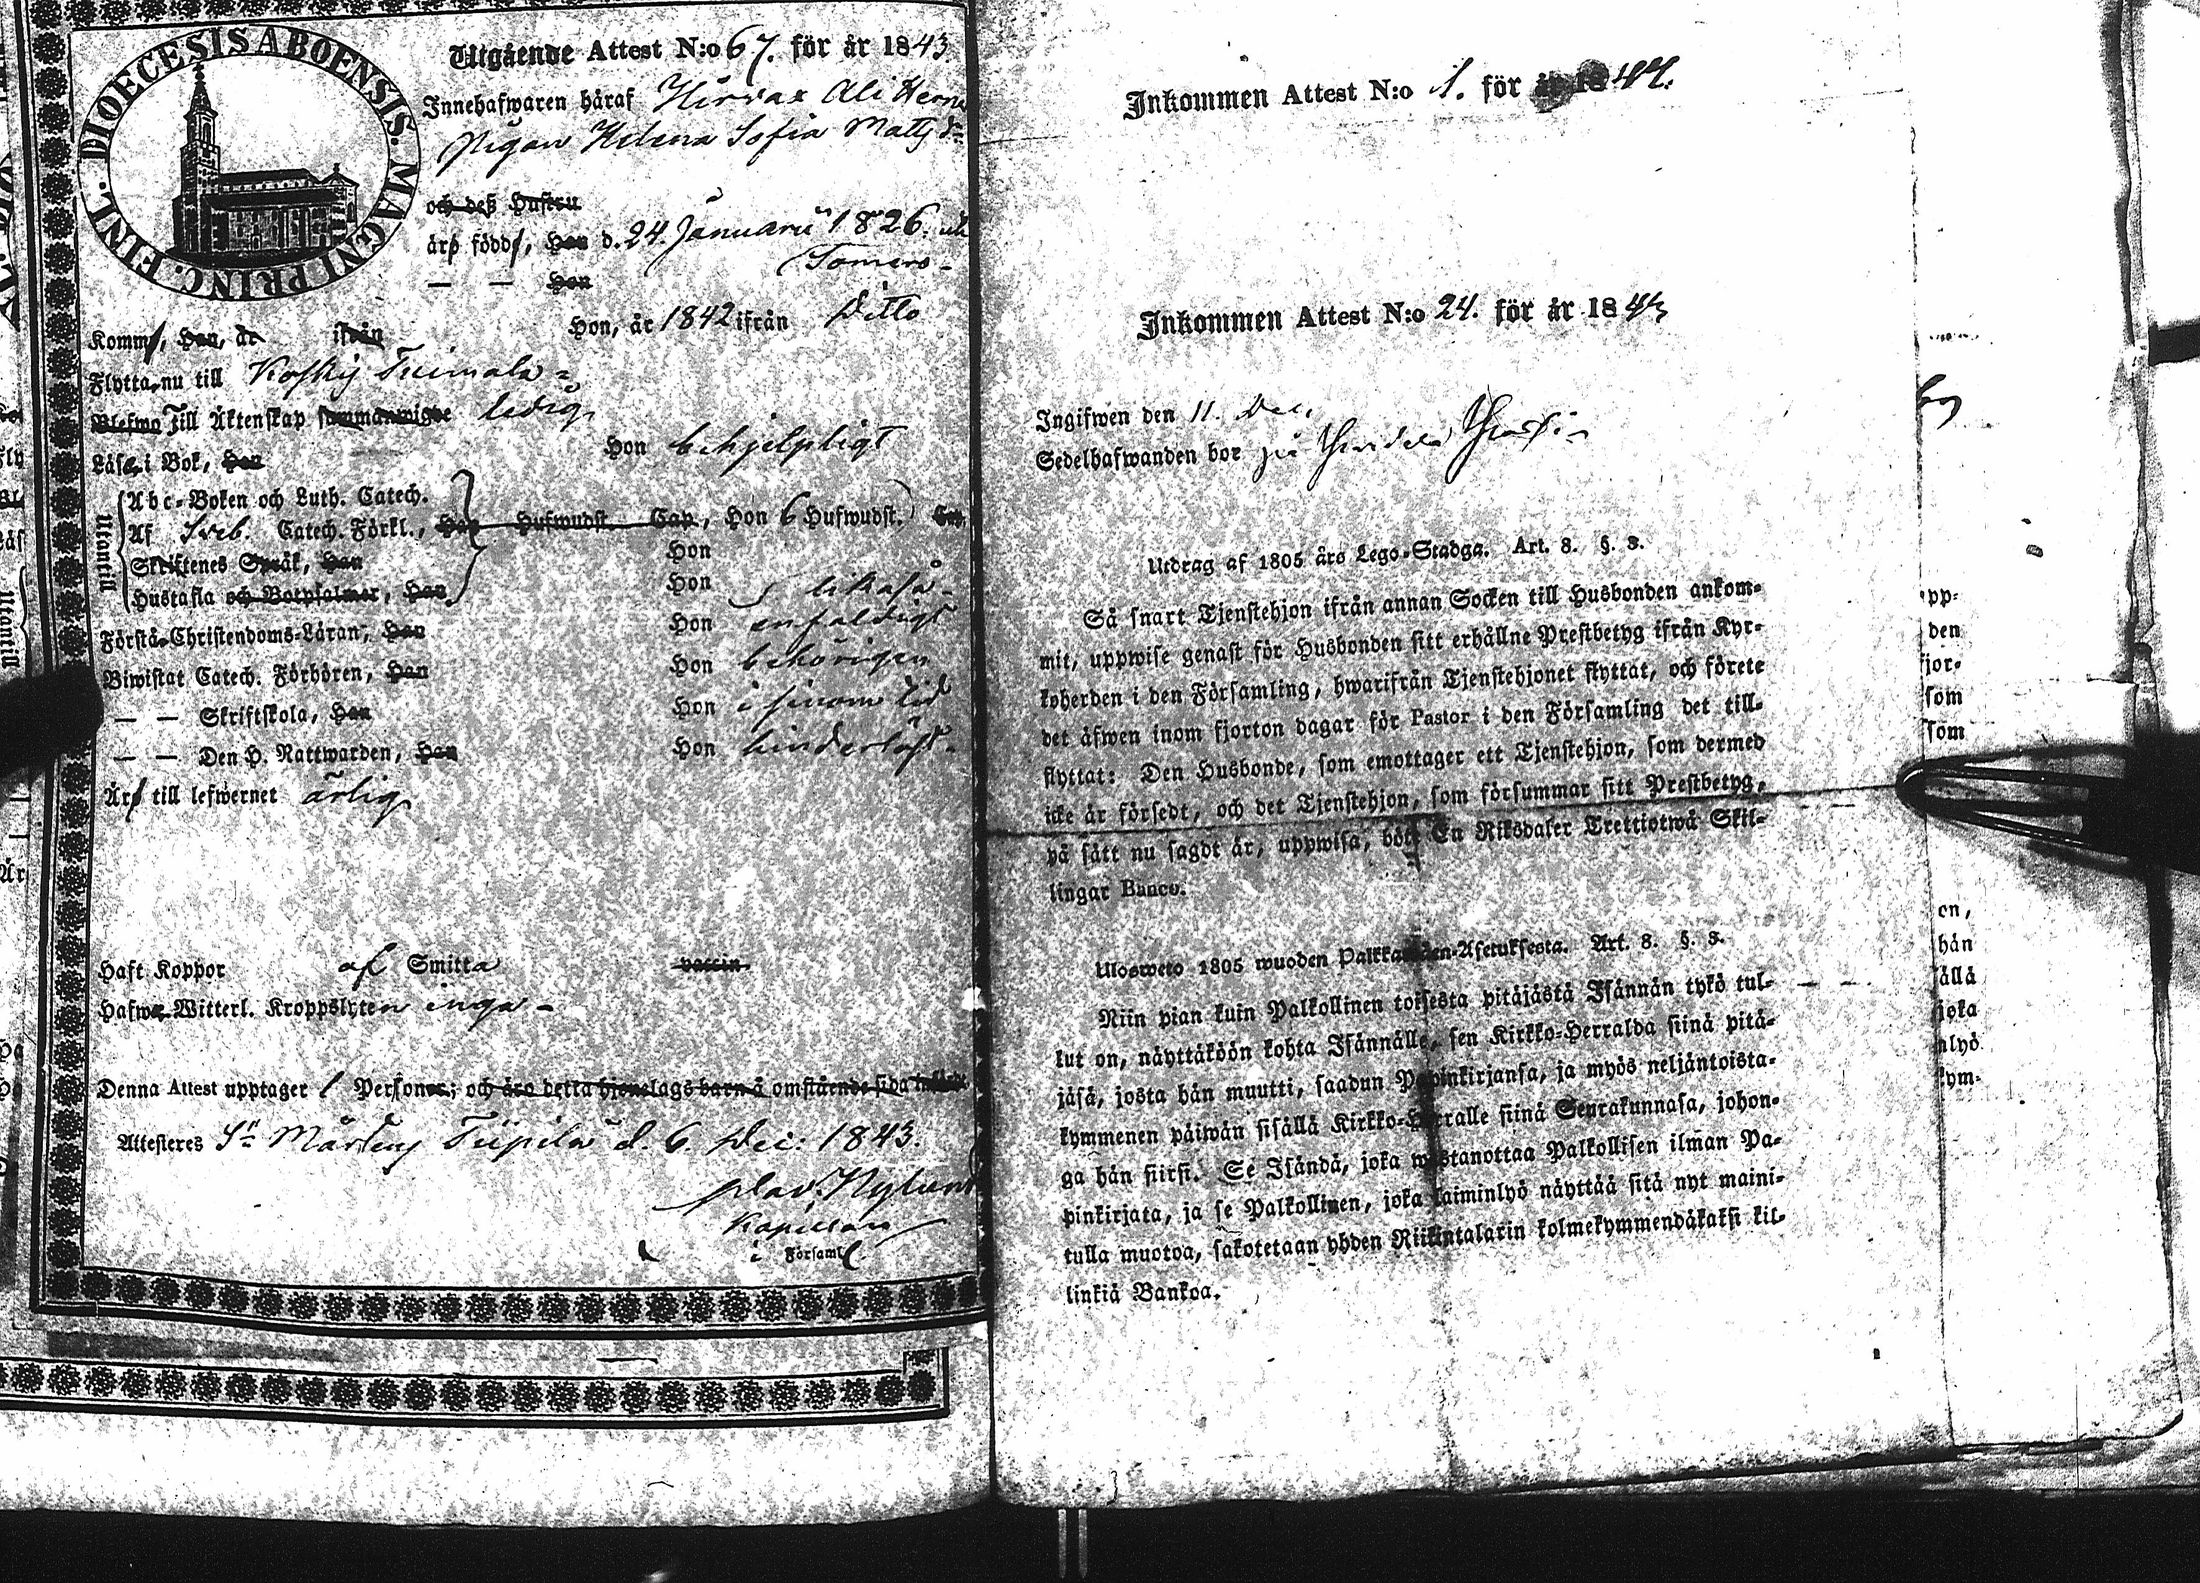 FINL. DIOECESIS ABOENSIS. MAGNI PRINC.
Utgående Attest N:o 67. för år 1843.
Innehafwaren häraf Hirvax Ali
Pigan Helena Sofia Matts dr
och deß Hustru
äro födde, Han d. 24. Januarii 1826. uti
Somero
— — Hon
Kommo, Han, år ifrån Hon, år 1842 ifrån Ditto
Flytta nu till Koskis Tuimala
Blefwo Till Äktenskap sammanwigde ledig
Läsa i Bok, Han Hon behjelpligt
Utantill
Abc-Boken och Luth. Catech.
Af Sveb. Catech. Förkl., Han Hufwudst. Cap., Hon 6 Hufwudst. Cap.
Skriftenes Språk, Han Hon
Hustafla och Botpsalmer, Han Hon likaså
Förstå Christendoms-Läran, Han Hon enfaldigt
Biwistat Catech. Förhören, Han Hon behörigen
— — Skriftskola, Han Hon i sinom tid
— — Den H. Nattwarden, Han Hon hinderlöst
Äro till lefwernet ärlig
Haft Koppor af Smitta vaccin
Hafwa Witterl. Kroppslyten inga
Denna Attest upptager 1 Personer; och äro detta hjonelags barn å omstående sida införde
Attesteras St Mårtens Tiipilä d. 6. Dec: 1843.
Nylund
Kapellan
i Församl
Inkommen Attest N:o 1. för år 1844.
Inkommen Attest N:o 24. för år 1843
Ingifwen den 11. Dec.
Sedelhafwanden bor på
Utdrag af 1805 års Lego-Stadga. Art. 8. §. 3.
Så snart Tjenstehjon ifrån annan Socken till Husbonden ankom-
mit, uppwise genast för Husbonden sitt erhållne Prestbetyg ifrån Kyr-
koherden i den Församling, hwarifrån Tjenstehjonet flyttat, och förete
det äfwen inom fjorton dagar för Pastor i den Församling det till-
flyttat: Den Husbonde, som emottager ett Tjenstehjon, som dermed
icke är försedt, och det Tjenstehjon, som försummar sitt Prestbetyg,
på sätt nu sagdt är, uppwisa, böte En Riksdaler Trettiotwå Skil-
lingar Banco.
Ulosweto 1805 wuoden Palkkawäen-Asetuksesta. Art. 8. §. 3.
Niin pian kuin Palkollinen toisesta pitäjästä Isännän tykö tul-
kut on, näyttäköön kohta Isännälle, sen Kirkko-Herralda siinä pitä-
jäsä, josta hän muutti, saadun Papinkirjansa, ja myös neljäntoista-
kymmenen päiwän sisällä Kirkko-Herralle siinä Seurakunnasa, johon-
ga hän siirsi. Se Isändä, joka wastanottaa Palkollisen ilman Pa-
pinkirjata, ja se Palkollinen, joka laiminlyö näyttää sitä nyt maini-
tulla muotoa, sakotetaan yhden Riikintalarin kolmekymmendäkaksi kil-
linkiä Bankoa.